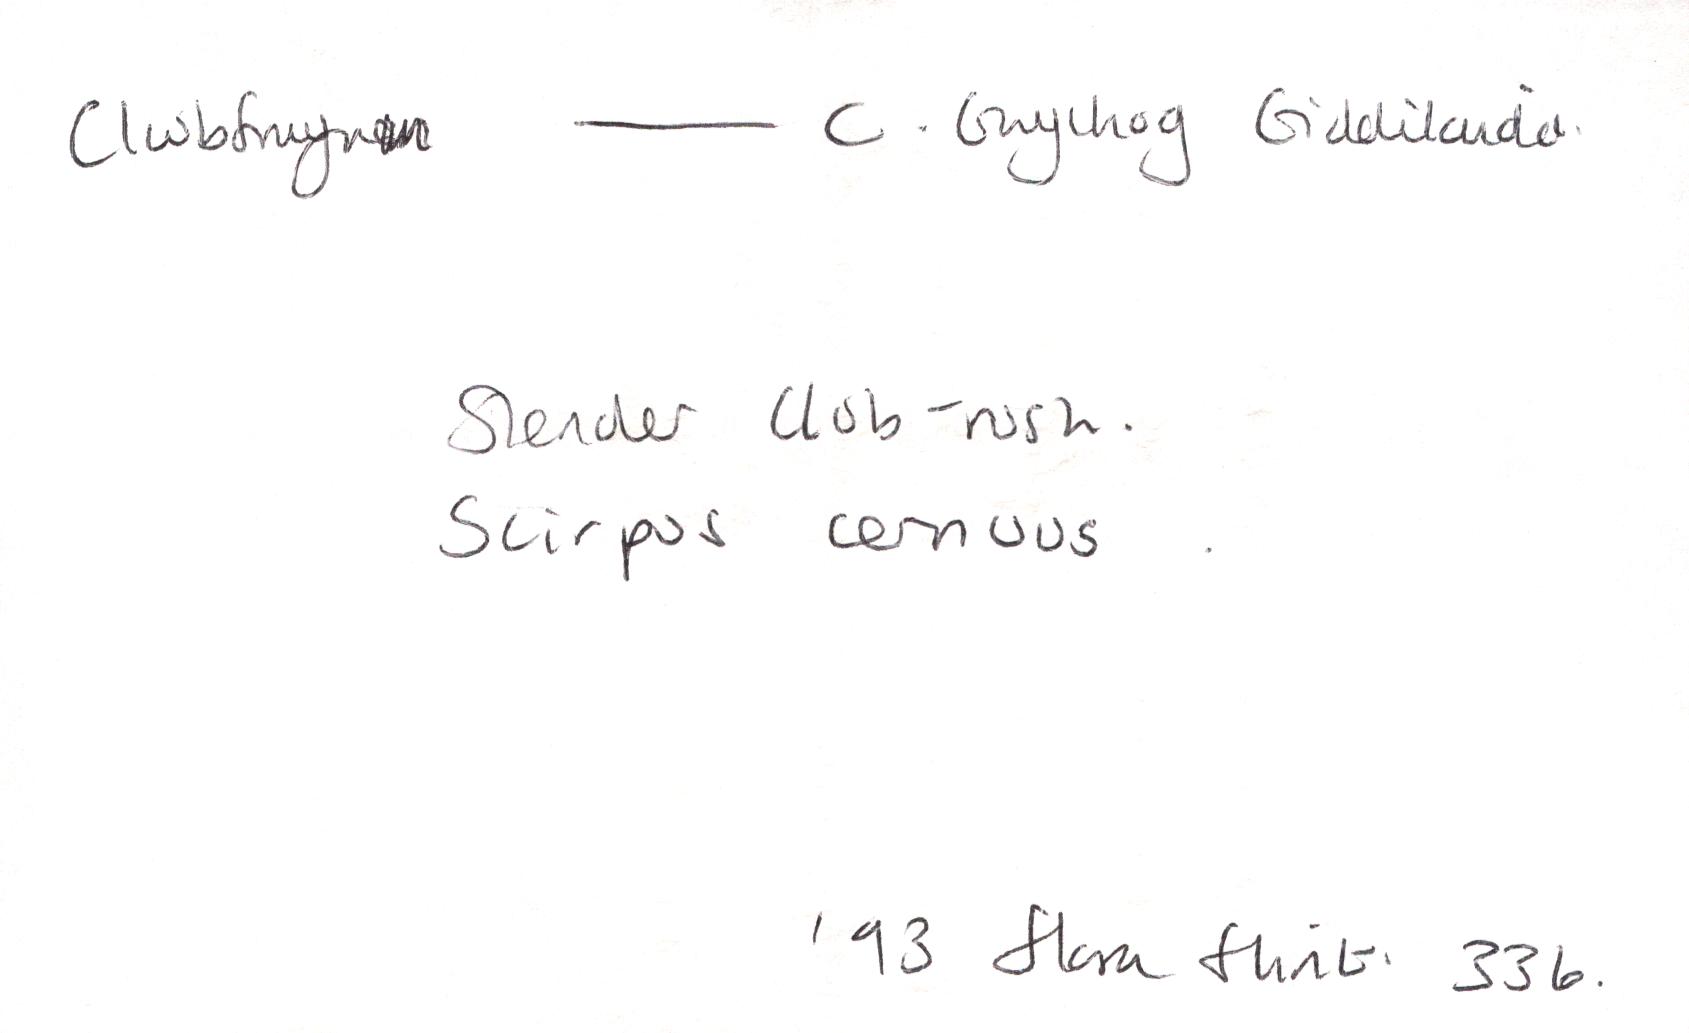 Clwbfrwynen — C. Eiddilaidd.
Slender Club-rush.
Scirpus cernuus.
'93 Flora Flint. 336.